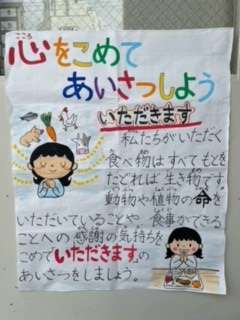 こころ
心をこめて
あいさつしよう
いただきます
私たちがいただく
食べ物はすべてもとを
たどれば生き物です。
動物や植物の命を
いただいていることや、食事ができる
ことへの感謝の気持ちを
こめていただきますの
あいさつをしましょう。